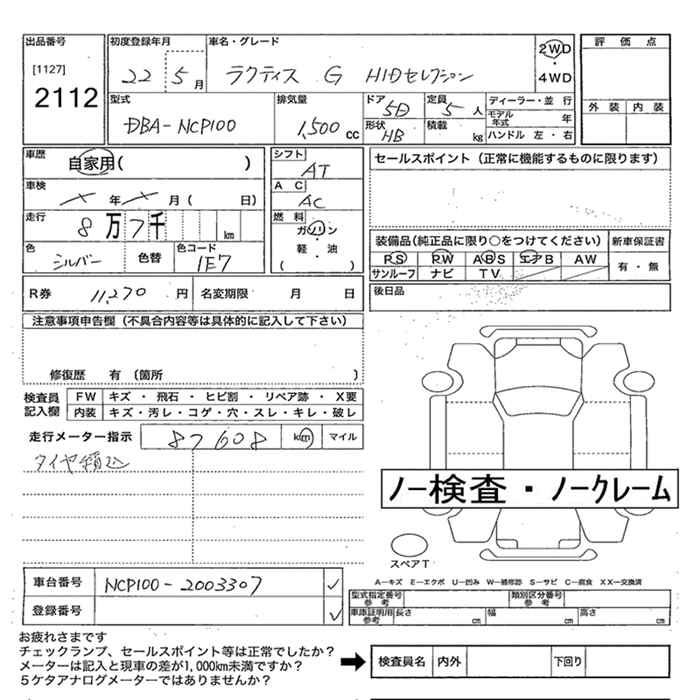 出品番号 初度登録年月 車名・グレード 評価点
[1127] 22 5月 ラクティス G HIDセレクション 2WD
2112 4WD
型式 排気量 ドア 5D 定員 5人 ディーラー・並行 外装 内装
DBA-NCP100 1,500cc 形状 HB 積載 kg モデル年式 年
ハンドル 左・右
車歴 自家用( ) シフト AT セールスポイント(正常に機能するものに限ります)
車検 年 月( 日) AC AC
走行 8万7千 km 燃料 ガソリン 装備品(純正品に限り○をつけてください) 新車保証書
色 シルバー 色替 色コード 1E7 軽・油 PS PW ABS エアB AW 有・無
( ) サンルーフ ナビ TV
R券 11,270円 名変期限 月 日 後日品
注意事項申告欄(不具合内容等は具体的に記入して下さい)
修復歴 有(箇所 )
検査員記入欄 FW キズ・飛石・ヒビ割・リペア跡・X要
内装 キズ・汚レ・コゲ・穴・スレ・キレ・破レ
走行メーター指示 87608 km マイル
タイヤ積込
ノー検査・ノークレーム
スペアT
A−キズ E−エクボ U−凹み W−補修跡 S−サビ C−腐食 XX−交換済
車台番号 NCP100-2003307 型式指定番号 参考 類別区分番号 参考
登録番号 車庫証明用 参考 長さ cm 幅 cm 高さ cm
お疲れさまです
チェックランプ、セールスポイント等は正常でしたか?
メーターは記入と現車の差が1,000km未満ですか? 検査員名 内外 下回り
5ケタアナログメーターではありませんか?